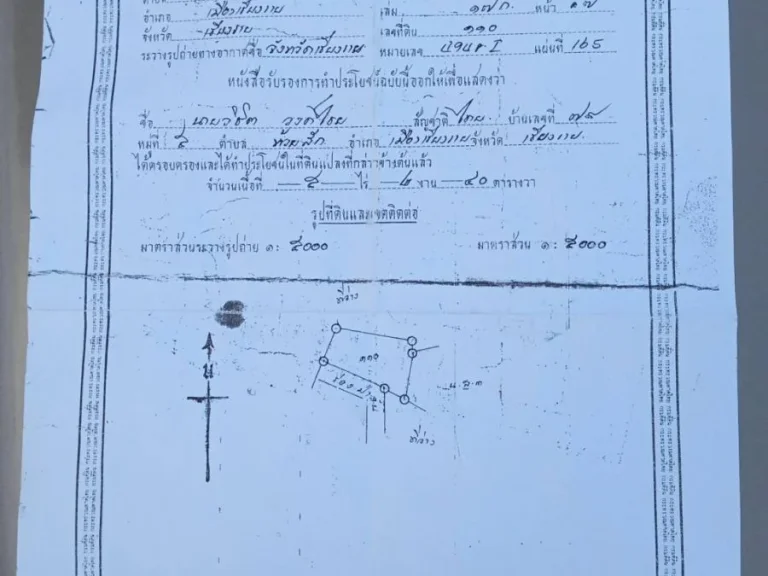 อำเภอ เมืองเชียงราย เล่ม ๑๗ ก. หน้า ๑๗
จังหวัด เชียงราย เลขที่ดิน ๑๑๐
ระวางรูปถ่ายทางอากาศชื่อ จังหวัดเชียงราย หมายเลข I แผ่นที่ 165
หนังสือรับรองการทำประโยชน์ฉบับนี้ออกให้เพื่อแสดงว่า
ชื่อ นาย วงค์ไชย สัญชาติ ไทย บ้านเลขที่ ๗๕
หมู่ที่ ๕ ตำบล ห้วยสัก อำเภอ เมืองเชียงราย จังหวัด เชียงราย
ได้ครอบครองและได้ทำประโยชน์ในที่ดินแปลงที่กล่าวข้างต้นแล้ว
จำนวนเนื้อที่ — ๕ — ไร่ — งาน — ๔๐ ตารางวา
รูปที่ดินและเขตติดต่อ
มาตราส่วนระวางรูปถ่าย ๑ : ๕๐๐๐ มาตราส่วน ๑ : ๕๐๐๐
ที่ว่าง
๑๑๐
น.ส.๓
ที่ว่าง